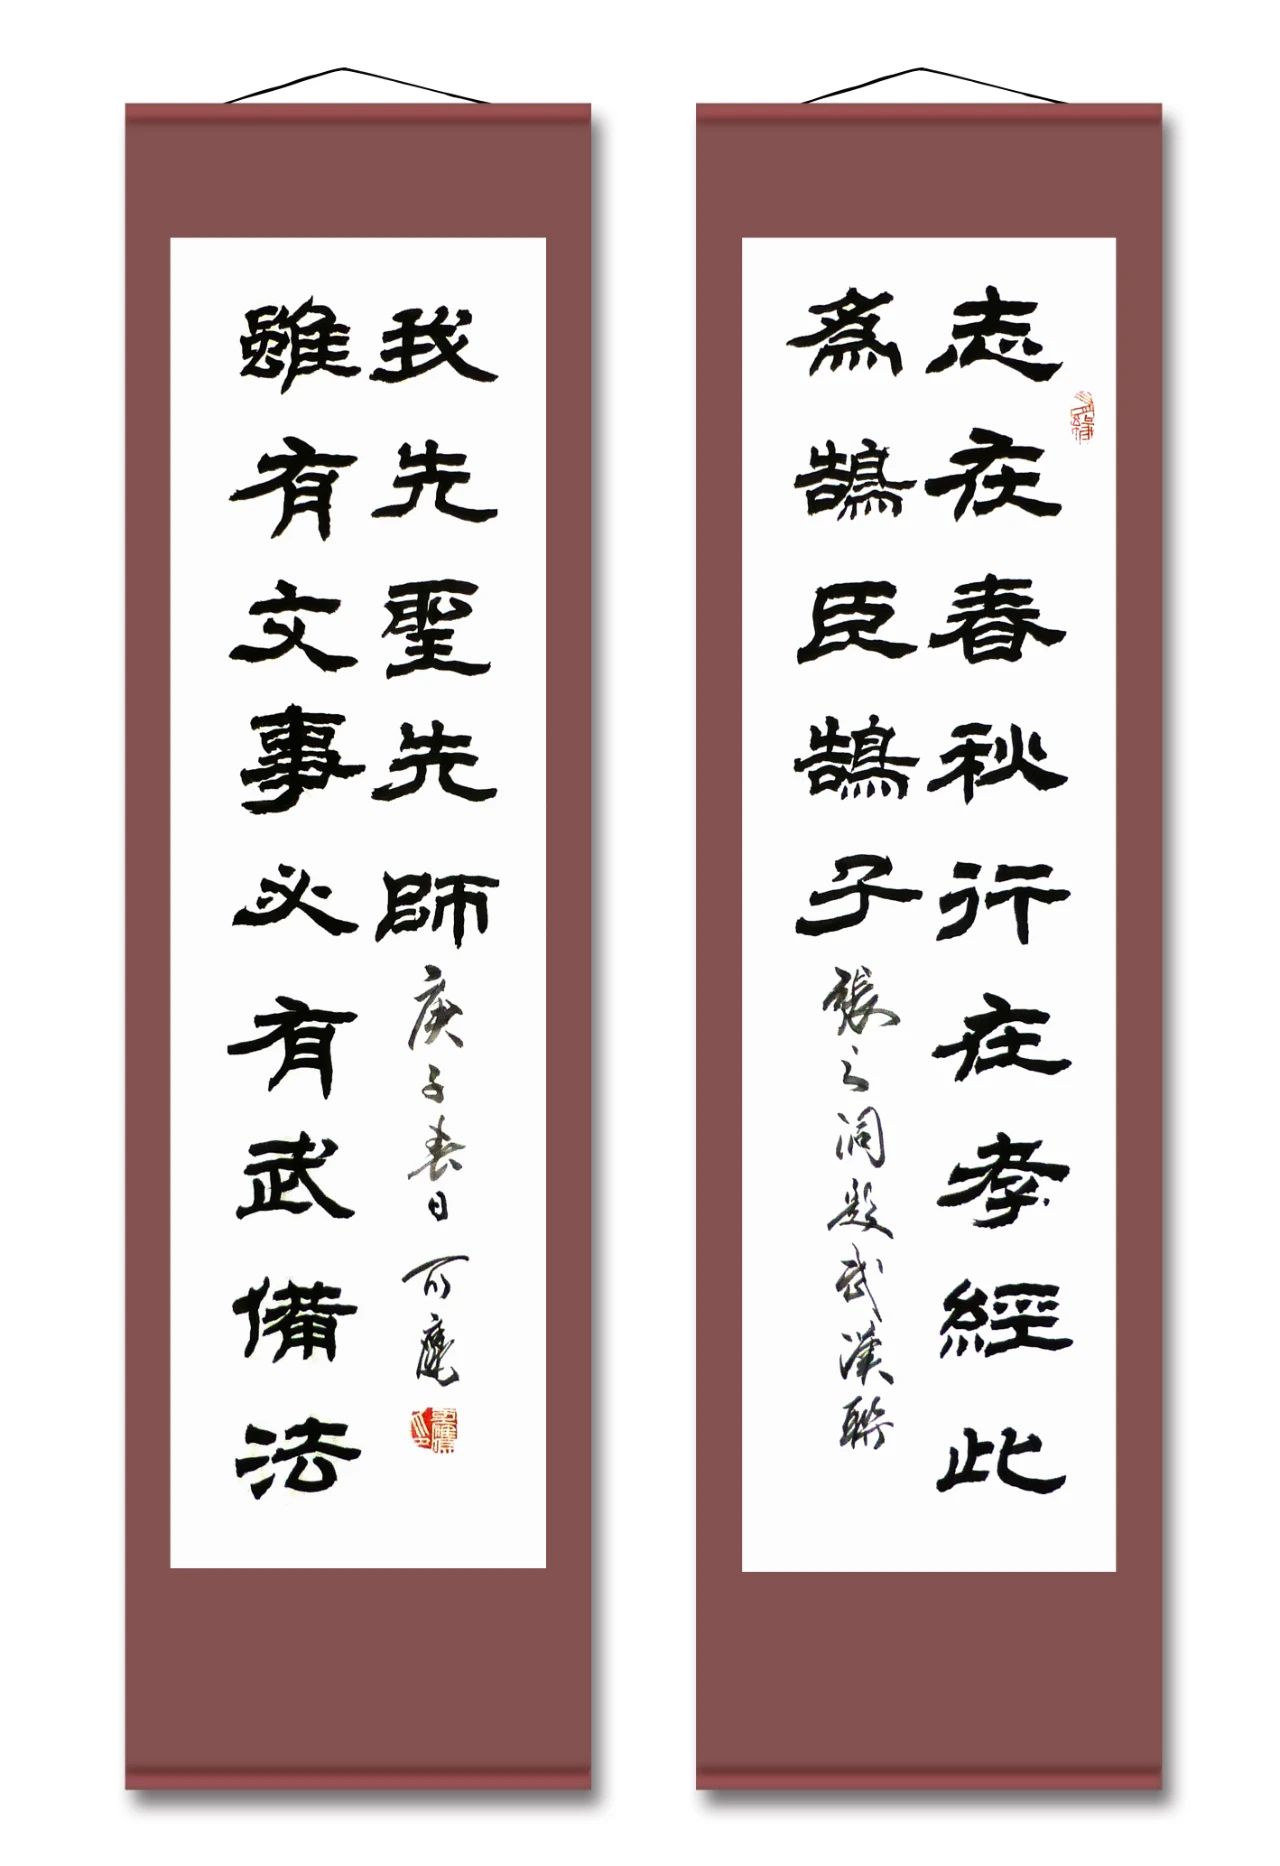 志在春秋行在孝經此
為鵠臣鵠子
張之洞題武漢聯
雖有文事必有武備法
我先聖先師
庚子春日